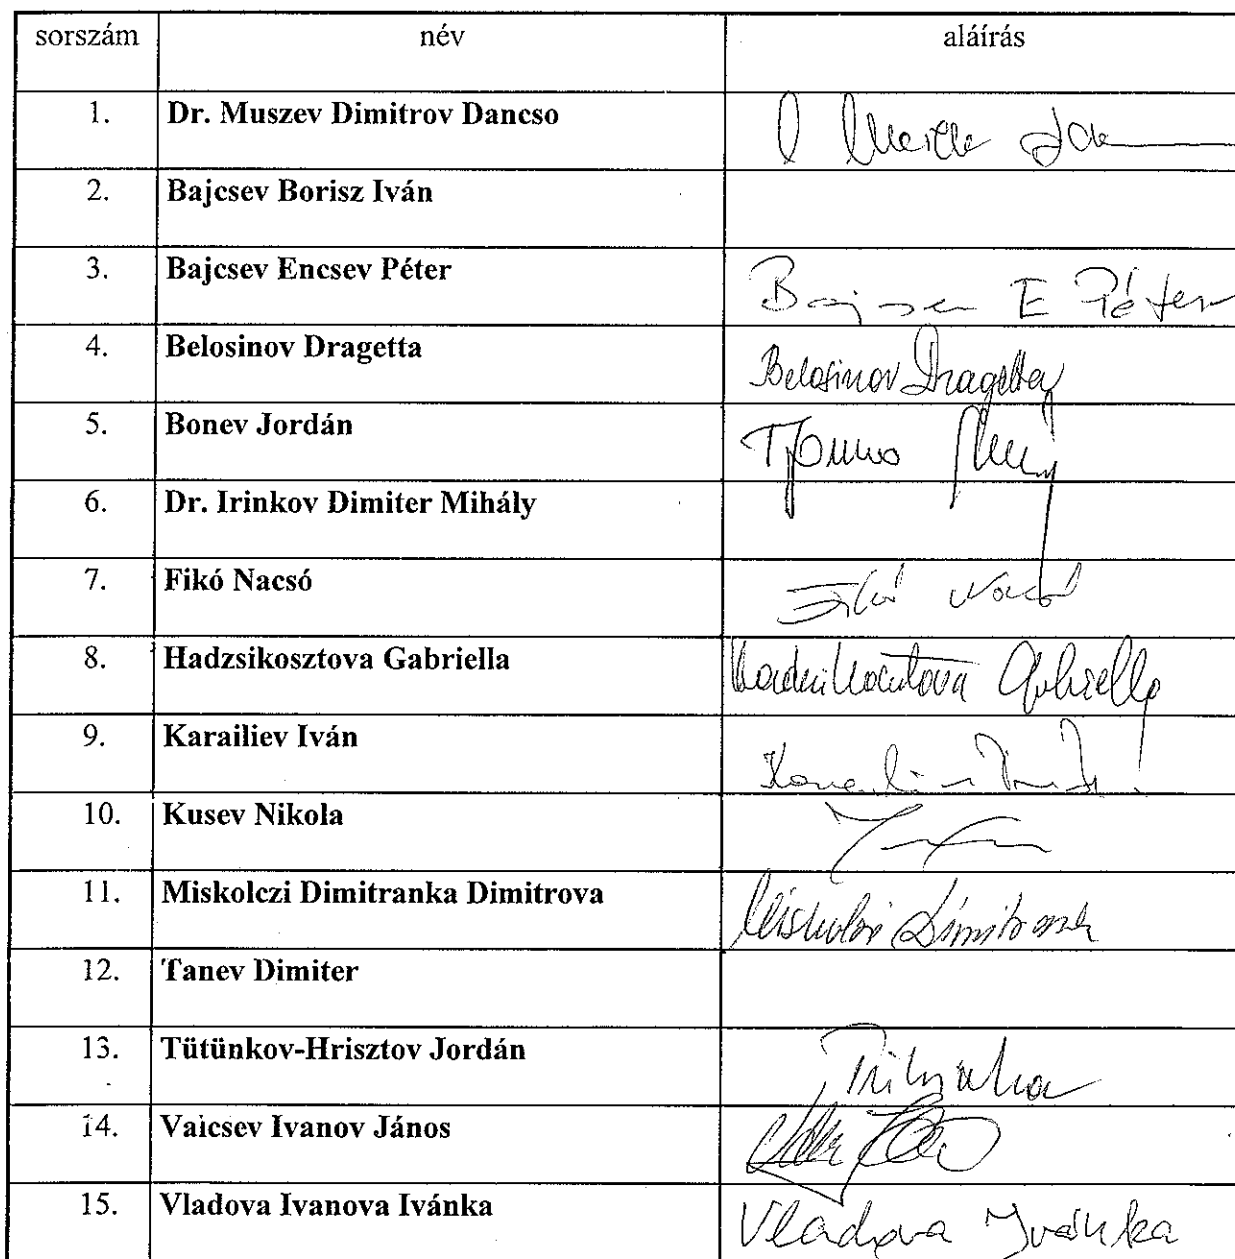 sorszám név aláírás
1. Dr. Muszev Dimitrov Dancso
2. Bajcsev Borisz Iván
3. Bajcsev Encsev Péter E Péter
4. Belosinov Dragetta Belosinov Dragetta
5. Bonev Jordán
6. Dr. Irinkov Dimiter Mihály
7. Fikó Nacsó Fikó Nacsó
8. Hadzsikosztova Gabriella Gabriella
9. Karailiev Iván
10. Kusev Nikola
11. Miskolczi Dimitranka Dimitrova
12. Tanev Dimiter
13. Tütünkov-Hrisztov Jordán
14. Vaicsev Ivanov János
15. Vladova Ivanova Ivánka Vladova Ivánka